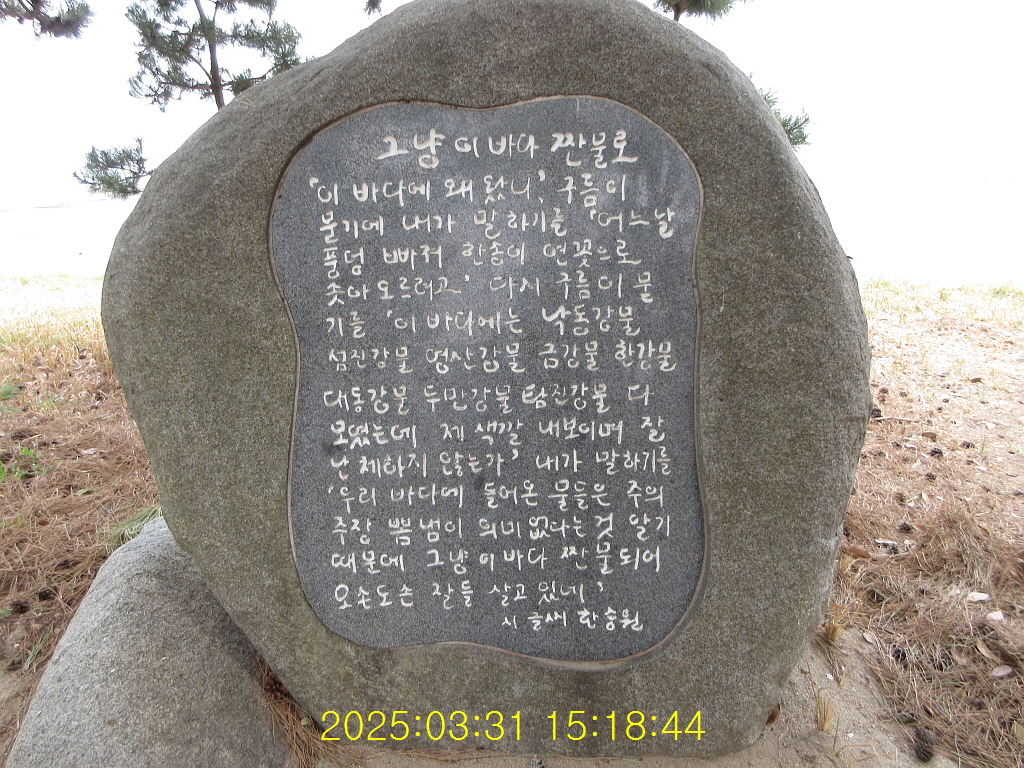 그냥 이 바다 짠물로
'이 바다에 왜 왔니', 구름이
묻기에 내가 말하기를 '어느날
풍덩 빠져 한송이 연꽃으로
솟아오르려고' 다시 구름이 묻
기를 '이 바다에는 낙동강물
섬진강물 영산강물 금강물 한강물
대동강물 두만강물 탐진강물 다
모였는데 제 색깔 내보이며 잘
난 체하지 않는가' 내가 말하기를
'우리 바다에 들어온 물들은 주의
주장 뽐냄이 의미 없다는 것 알기
때문에 그냥 이 바다 짠물되어
오손도손 잘들 살고 있네'
시 글씨 한승원
2025:03:31 15:18:44